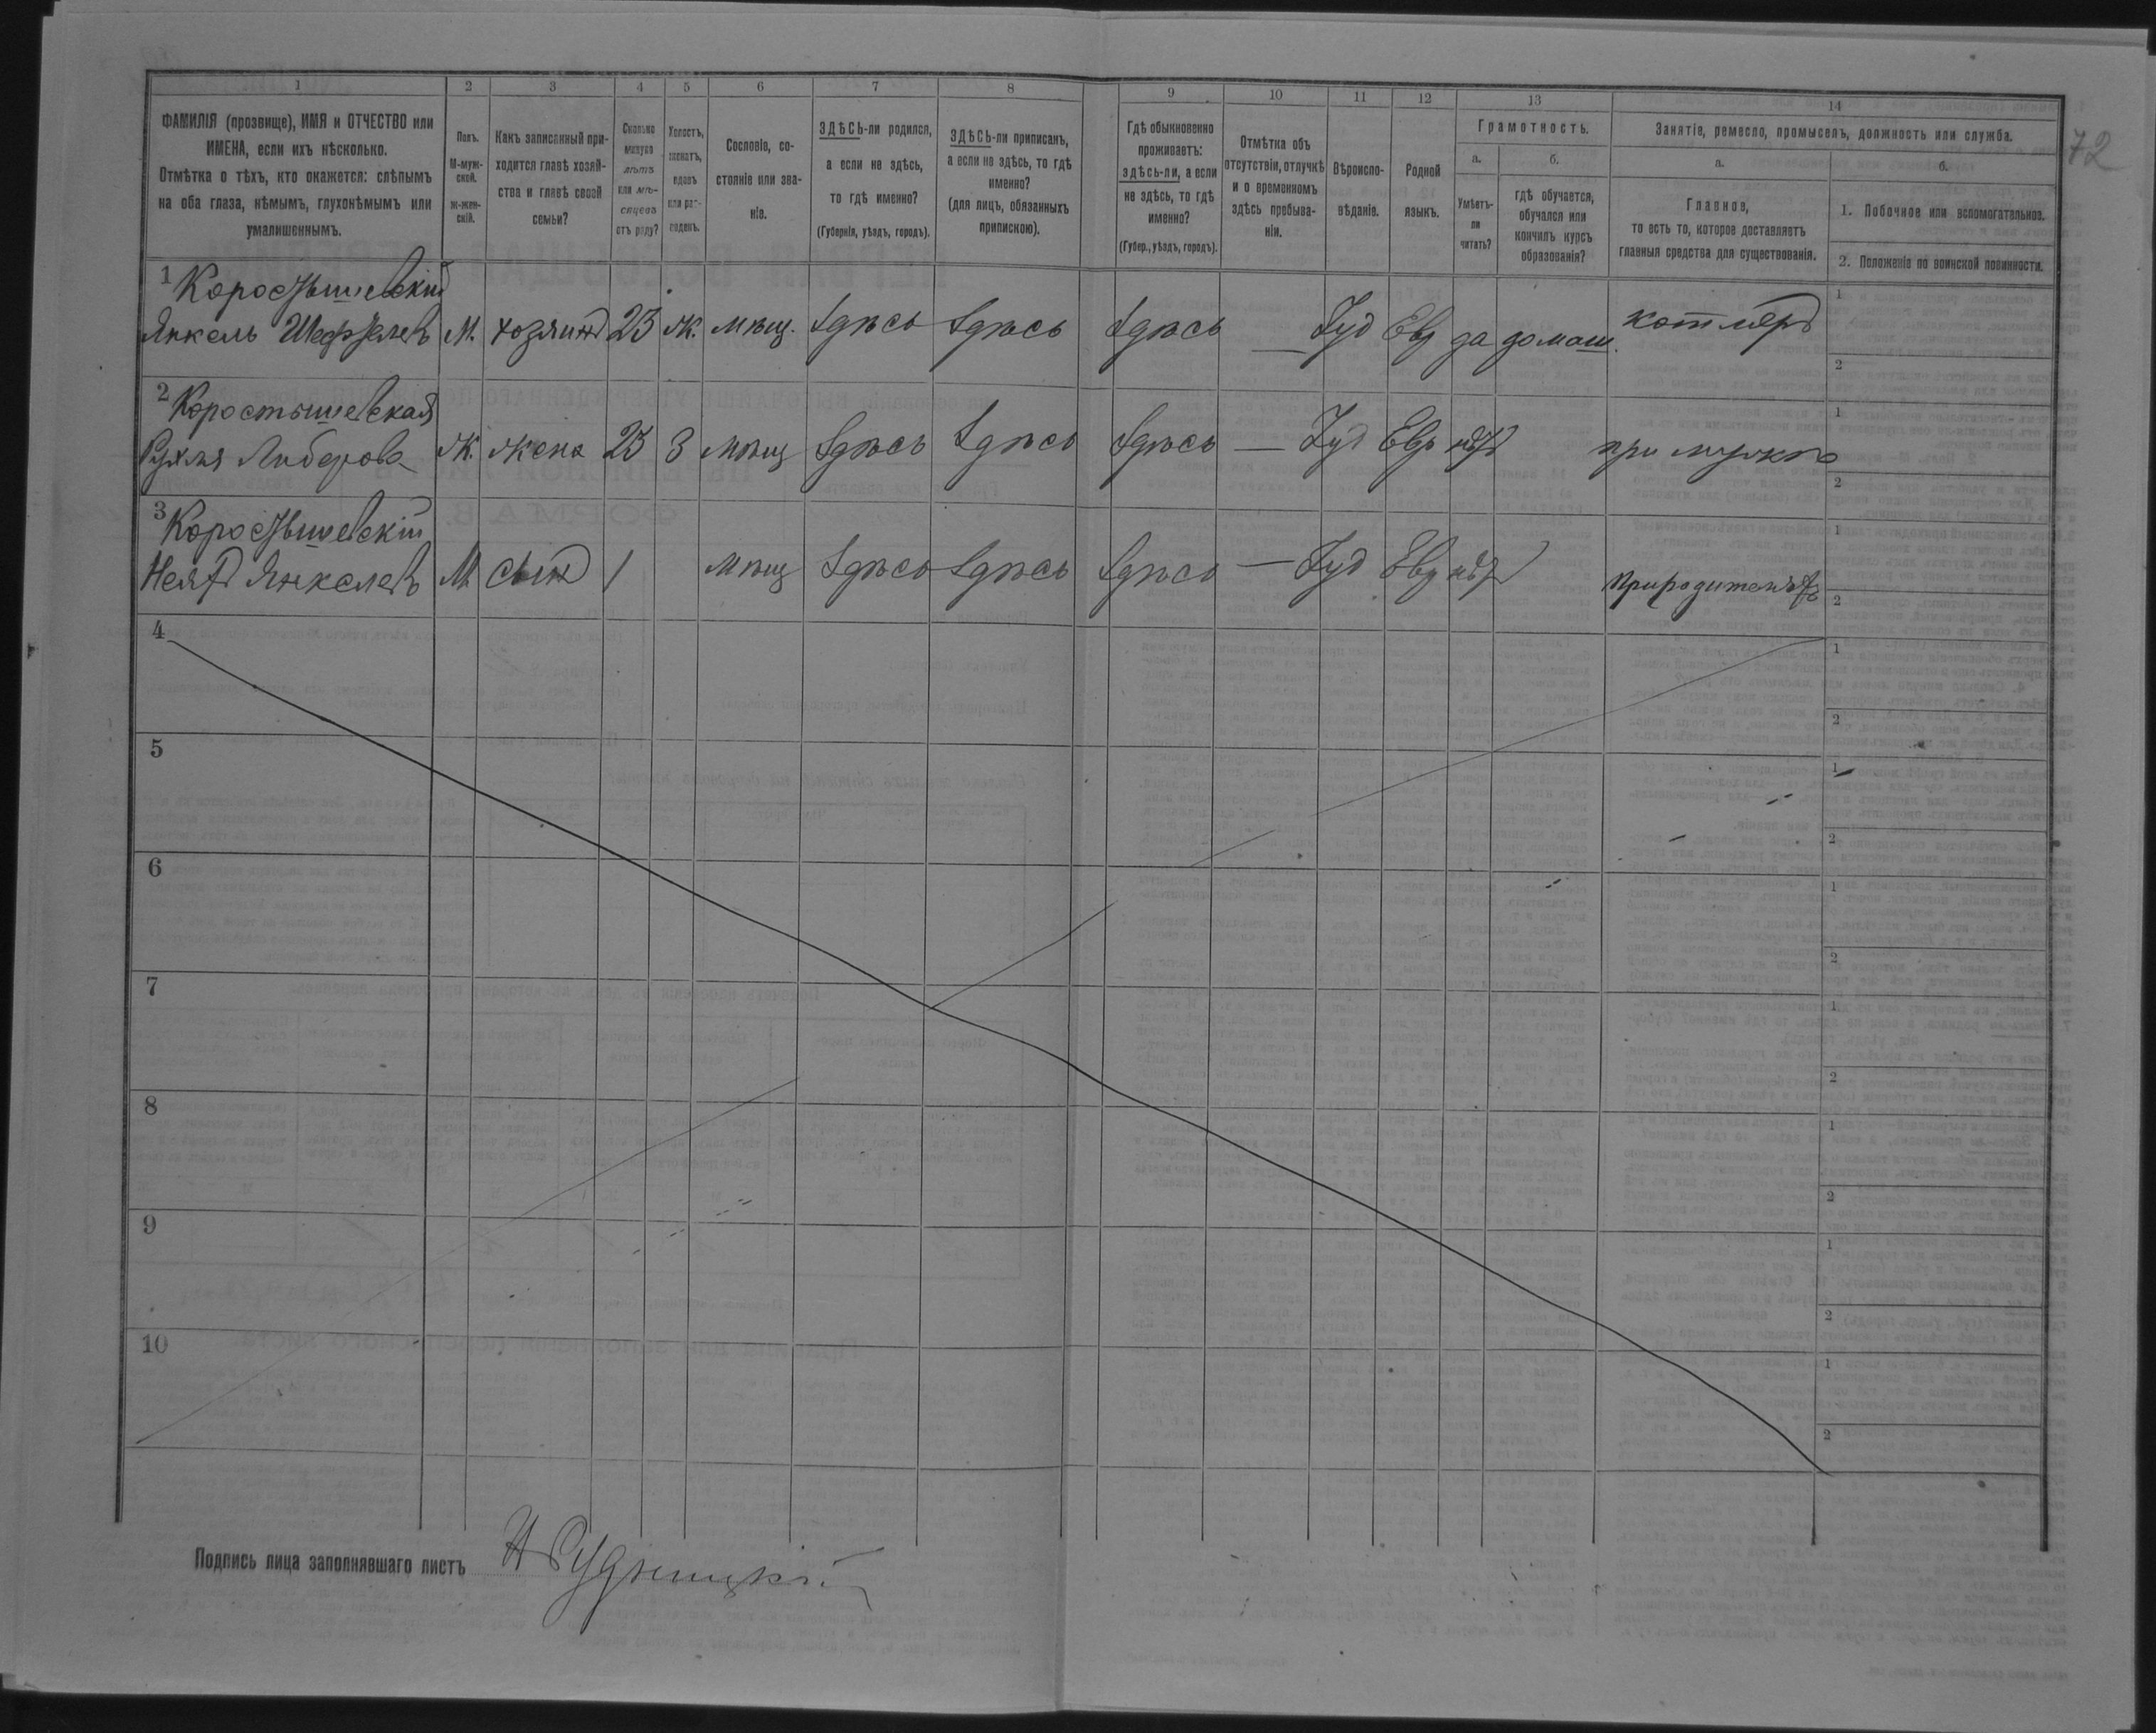 72
1 2 3 4 5 6 7 8 9 10 11 12 13 14
ФАМИЛІЯ (прозвище), ИМЯ и ОТЧЕСТВО или
ИМЕНА, если ихъ нѣсколько.
Отмѣтка о тѣхъ, кто окажется: слѣпымъ
на оба глаза, нѣмымъ, глухонѣмымъ или
умалишеннымъ.
Полъ.
М-муж-
ской.
ж-жен-
скій.
Какъ записанный при-
ходится главѣ хозяй-
ства и главѣ своей
семьи?
Сколько
минуло
лѣтъ
или мѣ-
сяцевъ
отъ роду?
Холостъ,
женатъ,
вдовъ
или раз-
веденъ.
Сословіе, со-
стояніе или зва-
ніе.
ЗДѢСЬ-ли родился,
а если не здѣсь,
то гдѣ именно?
(Губернія, уѣздъ, городъ).
ЗДѢСЬ-ли приписанъ,
а если не здѣсь, то гдѣ
именно?
(для лицъ, обязанныхъ
припискою).
Гдѣ обыкновенно
проживаетъ:
здѣсь-ли, а если
не здѣсь, то гдѣ
именно?
(Губер., уѣздъ, городъ).
Отмѣтка объ
отсутствіи, отлучкѣ
и о временномъ
здѣсь пребыва-
ніи.
Вѣроиспо-
вѣданіе.
Родной
языкъ.
Грамотность.
а. б.
Умѣетъ-
ли
читать?
гдѣ обучается,
обучался или
кончилъ курсъ
образованія?
Занятіе, ремесло, промыселъ, должность или служба.
а. б.
Главное,
то есть то, которое доставляетъ
главныя средства для существованія.
1. Побочное или вспомогательное.
2. Положеніе по воинской повинности.
1 Коростышевскій
Янкель М. хозяинъ 23 Ж. мѣщ. Здѣсь Здѣсь Здѣсь — Іуд Евр да домаш.
1
2
2 Коростышевская
Рухля Ж. жена 23 З мѣщ Здѣсь Здѣсь Здѣсь — Іуд Евр нѣтъ при мужѣ
1
2
3 Коростышевскій
Янкелевъ М. сынъ 1 мѣщ Здѣсь Здѣсь Здѣсь — Іуд Евр нѣтъ При родителяхъ
1
2
4
1
2
5
1
2
6
1
2
7
1
2
8
1
2
9
1
2
10
1
2
Подпись лица заполнявшаго листъ Рудницкій